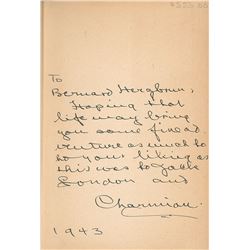 To
Bernard
Hoping that
life may bring
you some fine ad-
venture as much to
to your liking as
this was to Jack
London and
Charmian.
1943